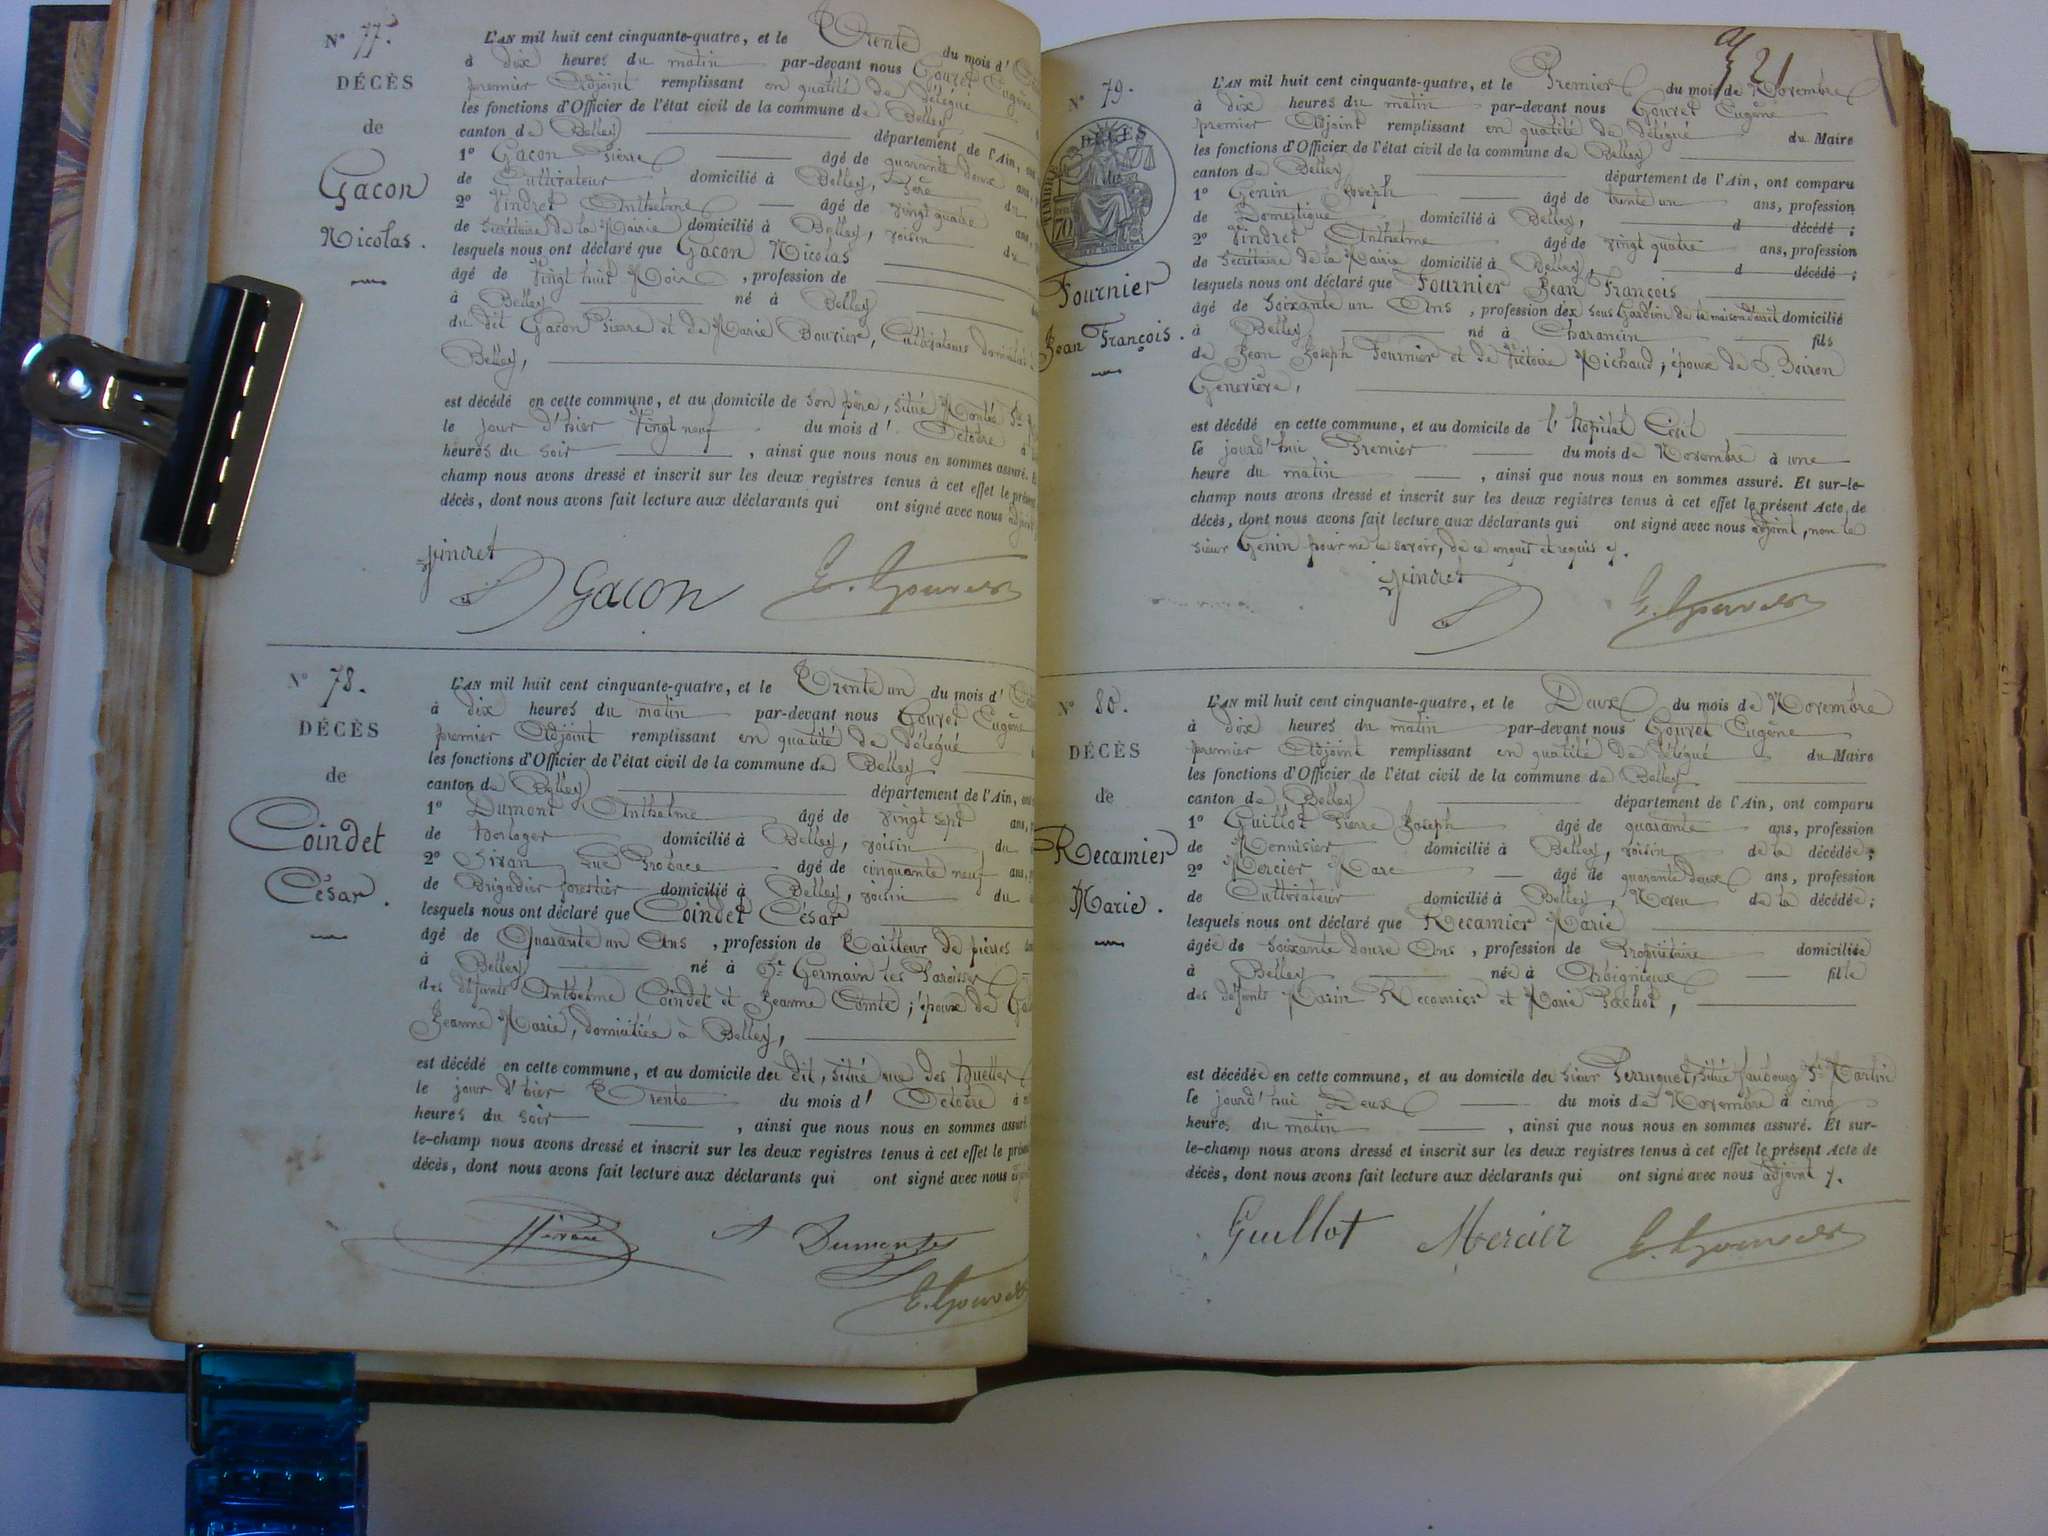 N° 77.
DÉCÈS
de
Gacon
Nicolas.
L'AN mil huit cent cinquante-quatre, et le Trente du mois d'
à dix heures du matin par-devant nous Gouvet Eugène
premier Adjoint remplissant en qualité de Délégué
les fonctions d'Officier de l'état civil de la commune de Belley
canton de Belley département de l'Ain,
1° Gacon Pierre âgé de quarante deux ans,
de Cultivateur domicilié à Belley, Père du
2° Vindret Anthelme âgé de vingt quatre ans,
de Secrétaire de la Mairie domicilié à Belley, voisin du
lesquels nous ont déclaré que Gacon Nicolas
âgé de Vingt huit Mois, profession de
à Belley né à Belley
du dit Gacon Pierre et de Marie Bouvier, Cultivateurs domiciliés
Belley,
est décédé en cette commune, et au domicile de son père, situé Montée Ste
le jour d'hier Vingt neuf du mois d' Octobre à
heures du soir, ainsi que nous nous en sommes assuré.
champ nous avons dressé et inscrit sur les deux registres tenus à cet effet le présent
décès, dont nous avons fait lecture aux déclarants qui ont signé avec nous adjoint
Vindret Gacon E. Gouvet
N° 78.
DÉCÈS
de
Coindet
César.
L'AN mil huit cent cinquante-quatre, et le Trente un du mois d'
à dix heures du matin par-devant nous Gouvet Eugène
premier Adjoint remplissant en qualité de Délégué
les fonctions d'Officier de l'état civil de la commune de Belley
canton de Belley département de l'Ain,
1° Dumont Anthelme âgé de vingt sept ans,
de horloger domicilié à Belley, voisin du
2° Sivan Luc Probace âgé de cinquante neuf ans,
de Brigadier forestier domicilié à Belley, voisin du
lesquels nous ont déclaré que Coindet César
âgé de Quarante un Ans, profession de Tailleur de pierres
à Belley né à St Germain les Paroisses
des défunts Anthelme Coindet et Jeanne Comte; époux de
Jeanne Marie, domiciliée à Belley,
est décédé en cette commune, et au domicile du dit, situé rue des
le jour d'hier Trente du mois d' Octobre à
heures du soir, ainsi que nous nous en sommes assuré
le-champ nous avons dressé et inscrit sur les deux registres tenus à cet effet le présent
décès, dont nous avons fait lecture aux déclarants qui ont signé avec nous
Sivan A Dumont
E. Gouvet
21
N° 79.
DÉCÈS
TIMBRE
70
Fournier
Jean François.
L'AN mil huit cent cinquante-quatre, et le Premier du mois de Novembre
à dix heures du matin par-devant nous Gouvet Eugène
premier Adjoint remplissant en qualité de Délégué du Maire
les fonctions d'Officier de l'état civil de la commune de Belley
canton de Belley département de l'Ain, ont comparu
1° Genin Joseph âgé de trente un ans, profession
de Domestique domicilié à Belley, d décédé;
2° Vindret Anthelme âgé de vingt quatre ans, profession
de Secrétaire de la Mairie domicilié à Belley, d décédé;
lesquels nous ont déclaré que Fournier Jean François
âgé de Soixante un Ans, profession d'ex Sous Gardien de la maison d'arrêt domicilié
à Belley né à Charancin fils
de Jean Joseph Fournier et de Victoire Michaud; époux de Boiron
Geneviève,
est décédé en cette commune, et au domicile de l'hopital Civil
le jourd'hui Premier du mois de Novembre à une
heure du matin, ainsi que nous nous en sommes assuré. Et sur-le-
champ nous avons dressé et inscrit sur les deux registres tenus à cet effet le présent Acte de
décès, dont nous avons fait lecture aux déclarants qui ont signé avec nous adjoint, non le
sieur Genin pour ne le savoir, de ce enquis et requis
Vindret E. Gouvet
N° 80.
DÉCÈS
de
Recamier
Marie.
L'AN mil huit cent cinquante-quatre, et le Deux du mois de Novembre
à dix heures du matin par-devant nous Gouvet Eugène
premier Adjoint remplissant en qualité de Délégué du Maire
les fonctions d'Officier de l'état civil de la commune de Belley
canton de Belley département de l'Ain, ont comparu
1° Guillot Pierre Joseph âgé de quarante ans, profession
de Menuisier domicilié à Belley, voisin de la décédée;
2° Mercier Marc âgé de quarante deux ans, profession
de Cultivateur domicilié à Belley, Neveu de la décédée;
lesquels nous ont déclaré que Recamier Marie
âgée de Soixante douze Ans, profession de Propriétaire domiciliée
à Belley née à Arbignieux fille
des défunts Marin Recamier et Marie Pochet,
est décédée en cette commune, et au domicile du sieur Peranguet, situé faubourg St Martin
le jourd'hui Deux du mois de Novembre à cinq
heures du matin, ainsi que nous nous en sommes assuré. Et sur-
le-champ nous avons dressé et inscrit sur les deux registres tenus à cet effet le présent Acte de
décès, dont nous avons fait lecture aux déclarants qui ont signé avec nous adjoint
Guillot Mercier E. Gouvet